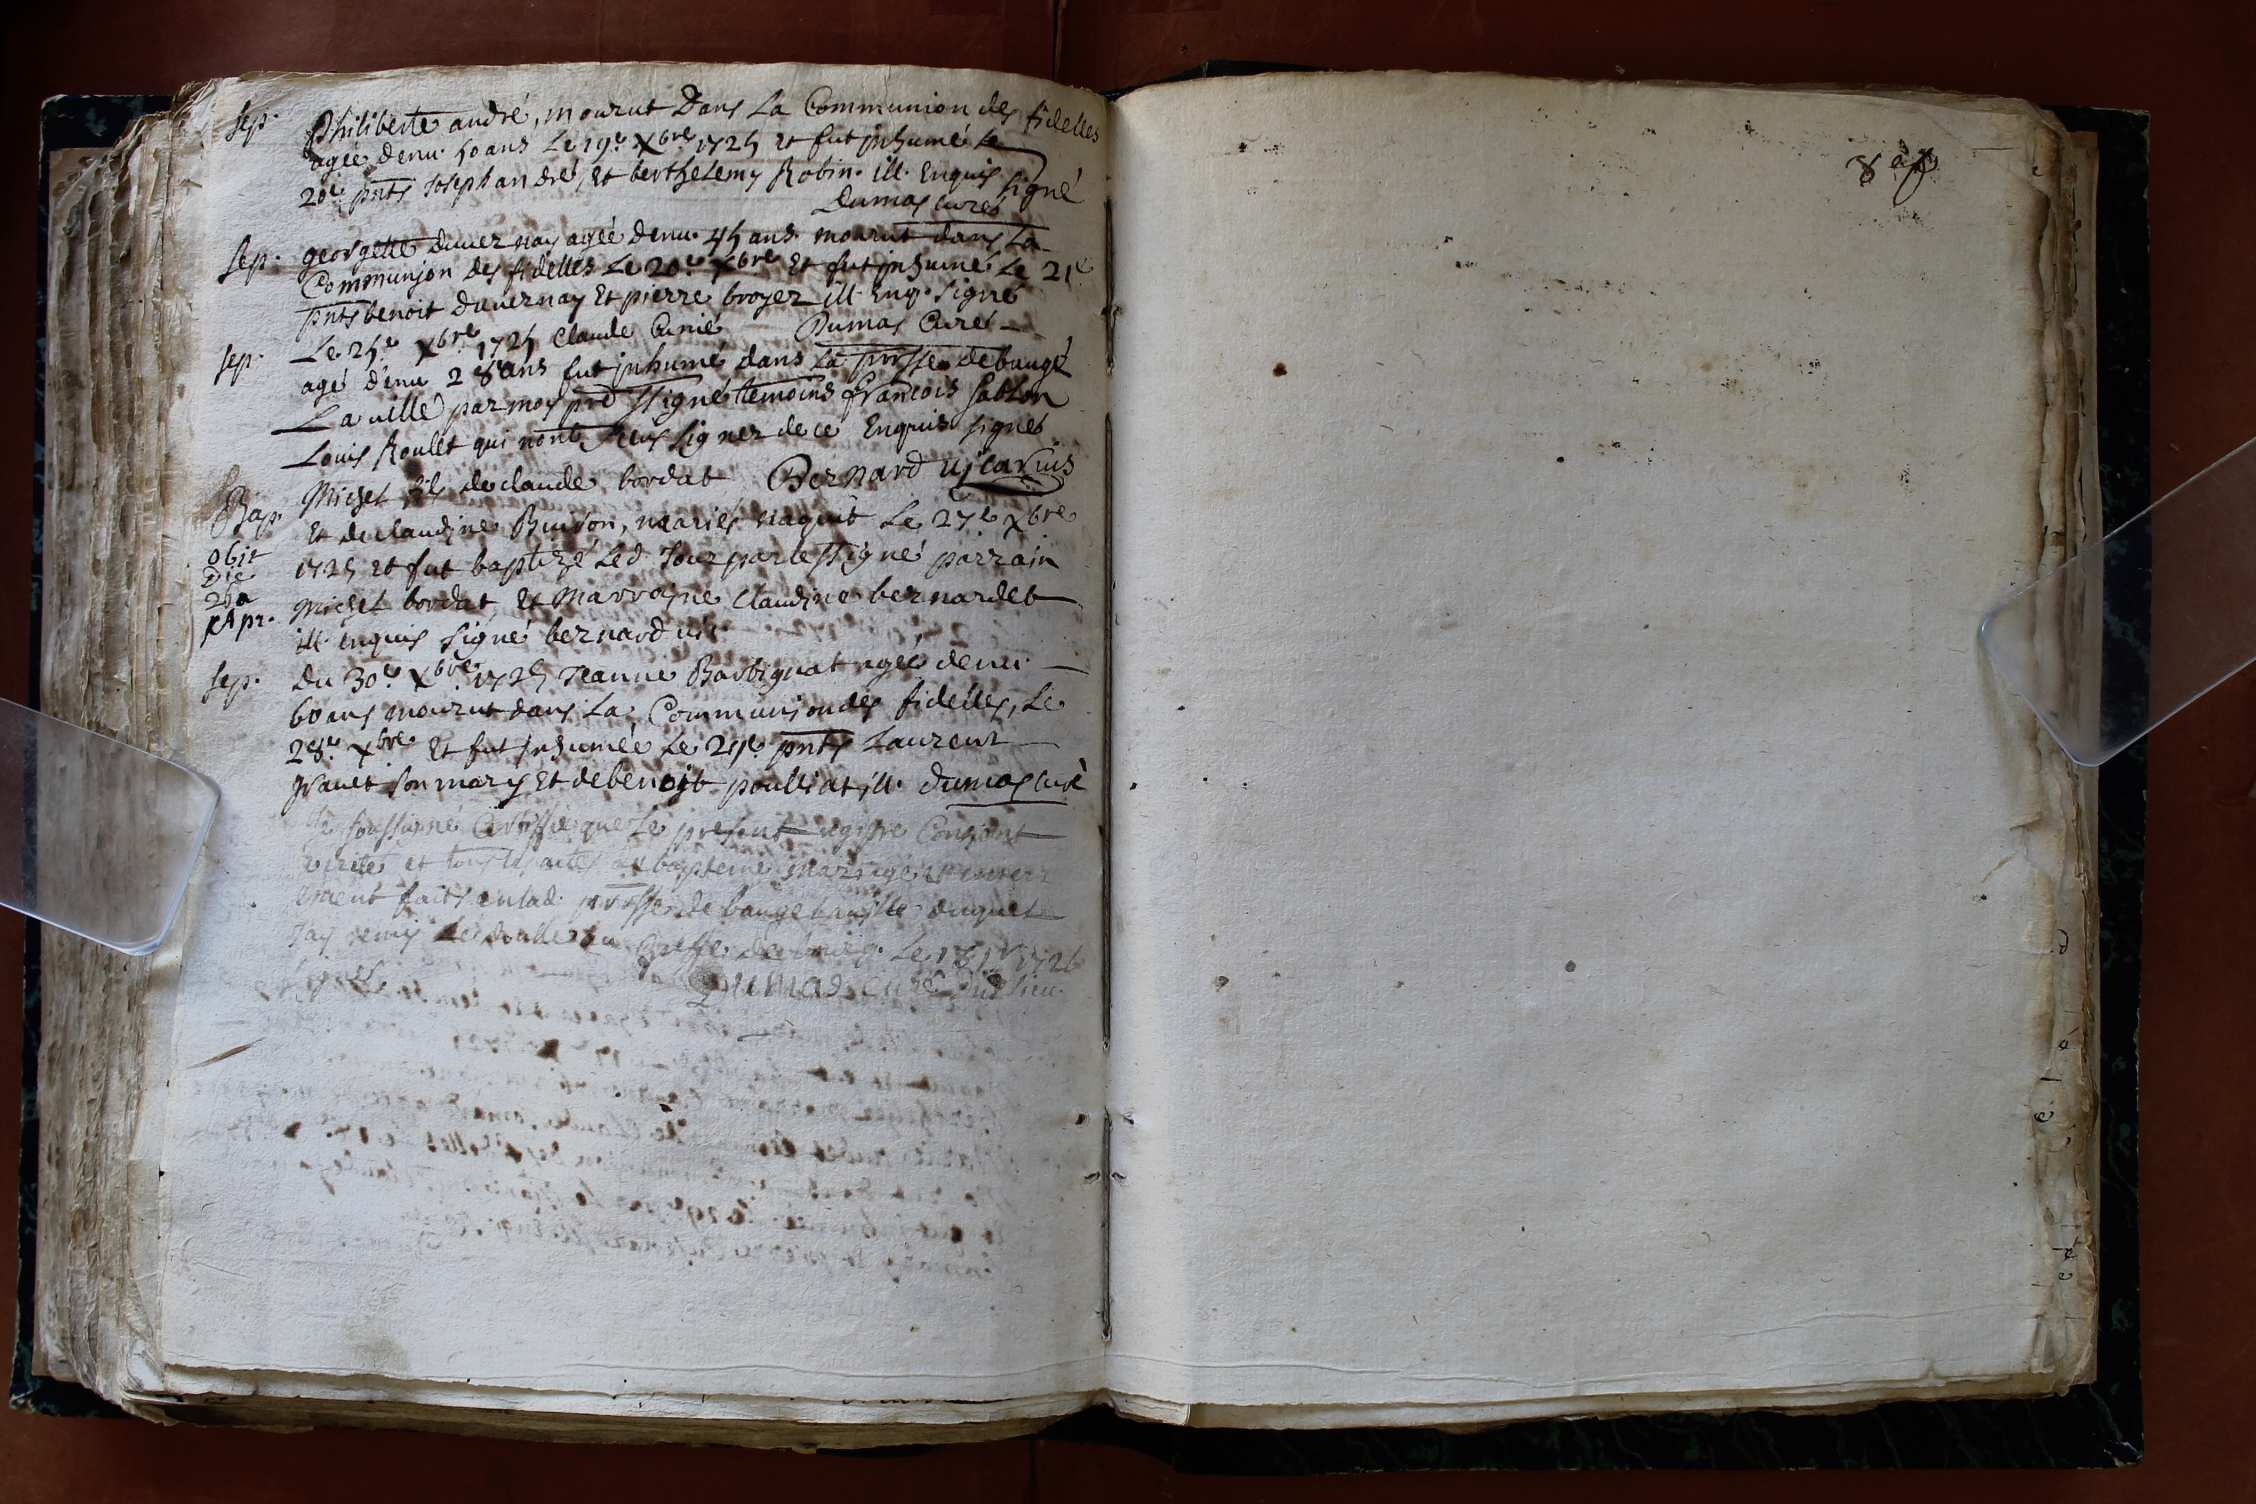 Sep. Philiberte andré, mourut Dans La Communion des fidelles
agée denu. 50 ans Le 19.e Xbre 1725 et fut inhumé Le
20.e pnts Joseph andré, et berthelemy Robin. ill. Enquis signé
Dumas curé
Sep. georgette duuernay agée denu. 45 ans. mourut dans La
Communion des fidelles Le 20.e Xbre et fut inhumé Le 21e
pnts benoit duuernay Et pierre broyer ill. Enq. signé
Dumas Curé
Sep. Le 25.e Xbre 1725 Claude Cunié
agé denu 28 ans fut inhumé dans La prosse de baugé
La uille par moy pre ssigné temoins françois sablon
Louis Roulet qui nont sceus signer de ce Enquis signés
Bernard vicarius
Bap. Michel fils de claude bordat
Et de claudine Buiron, mariés naquit Le 27e Xbre
obit Die 25a Apr.
1725 et fut baptizé Led. Jour par le ssigné parrain
Michel bordat et Marrayne Claudine bernardet
ill. enquis signé bernard vic.
Sep. Du 30.e Xbre 1725 Jeanne Barbignat agée denu.
60 ans mourut dans La Communion des fidelles, Le
28.e Xbre Et fut inhumée Le 29e pnts Laurent
son mary Et de benoit poulliat ill. dumas curé
Je soussigné Certiffie que Le present registre Contient
verité et tous les actes de bapteme mariage
faits en lad. prosse de baugé La uille duquel
Jay remis le double au Greffe de bourg. Le 18 1726
Dumas curé dud lieu
8 a